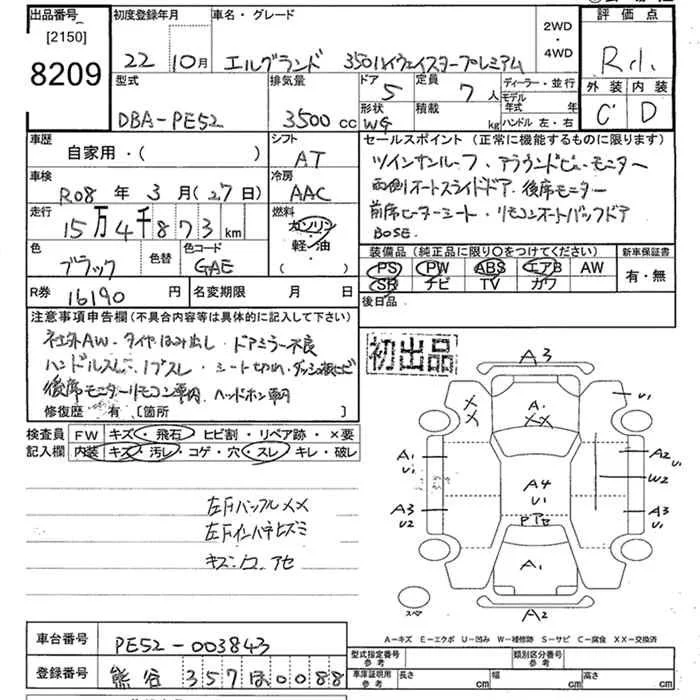 出品番号
[2150]
8209
初度登録年月
22年10月
車名・グレード
エルグランド 350ハイウェイスタープレミアム
2WD
・
4WD
評価点
R.1.
外装 内装
C D
型式
DBA-PE52
排気量
3500cc
ドア
5
定員
7人
ディーラー・並行
モデル年式 年
形状
WG
積載
kg
ハンドル 左・右
車歴
自家用・( )
シフト
AT
車検
R08年3月(27日)
冷房
AAC
走行
15万4千873km
燃料
ガソリン
軽・油
( )
色
ブラック
色替
色コード
GAE
セールスポイント(正常に機能するものに限ります)
ツインサンルーフ・アラウンドビューモニター
両側オートスライドドア・後席モニター
前席ヒーターシート・リモコンオートバックドア
BOSE.
装備品(純正品に限り○をつけてください)
PS PW ABS エアB AW
SR ナビ TV カワ
新車保証書
有・無
R券
16190円
名変期限 月 日
後日品
注意事項申告欄(不具合内容等は具体的に記入して下さい)
社外AW・タイヤはみ出し・ドアミラー不良
ハンドルスレ・ノブスレ・シート切れ・ダッシュ板ヒビ
後席モニターリモコン車内、ヘッドホン車内
修復歴・有[箇所 ]
初出品
検査員 FW キズ・飛石・ヒビ割・リペア跡・×要
記入欄 内装 キズ・汚レ・コゲ・穴・スレ・キレ・破レ
左Fバッフル××
左Fインパネヒズミ
キズ・凹・アセ
A3
××
U1
A.
××
A1
U1
A2
U1
W2
A4
U1
A3
U2
A3
U1
PアセA1
スペア
A2
A-キズ E-エクボ U-凹み W-補修跡 S-サビ C-腐食 XX-交換済
車台番号
PE52-003843
登録番号
熊谷 357 ほ 0088
型式指定番号
参考
類別区分番号
参考
車庫証明用
参考
長さ cm
幅 cm
高さ cm